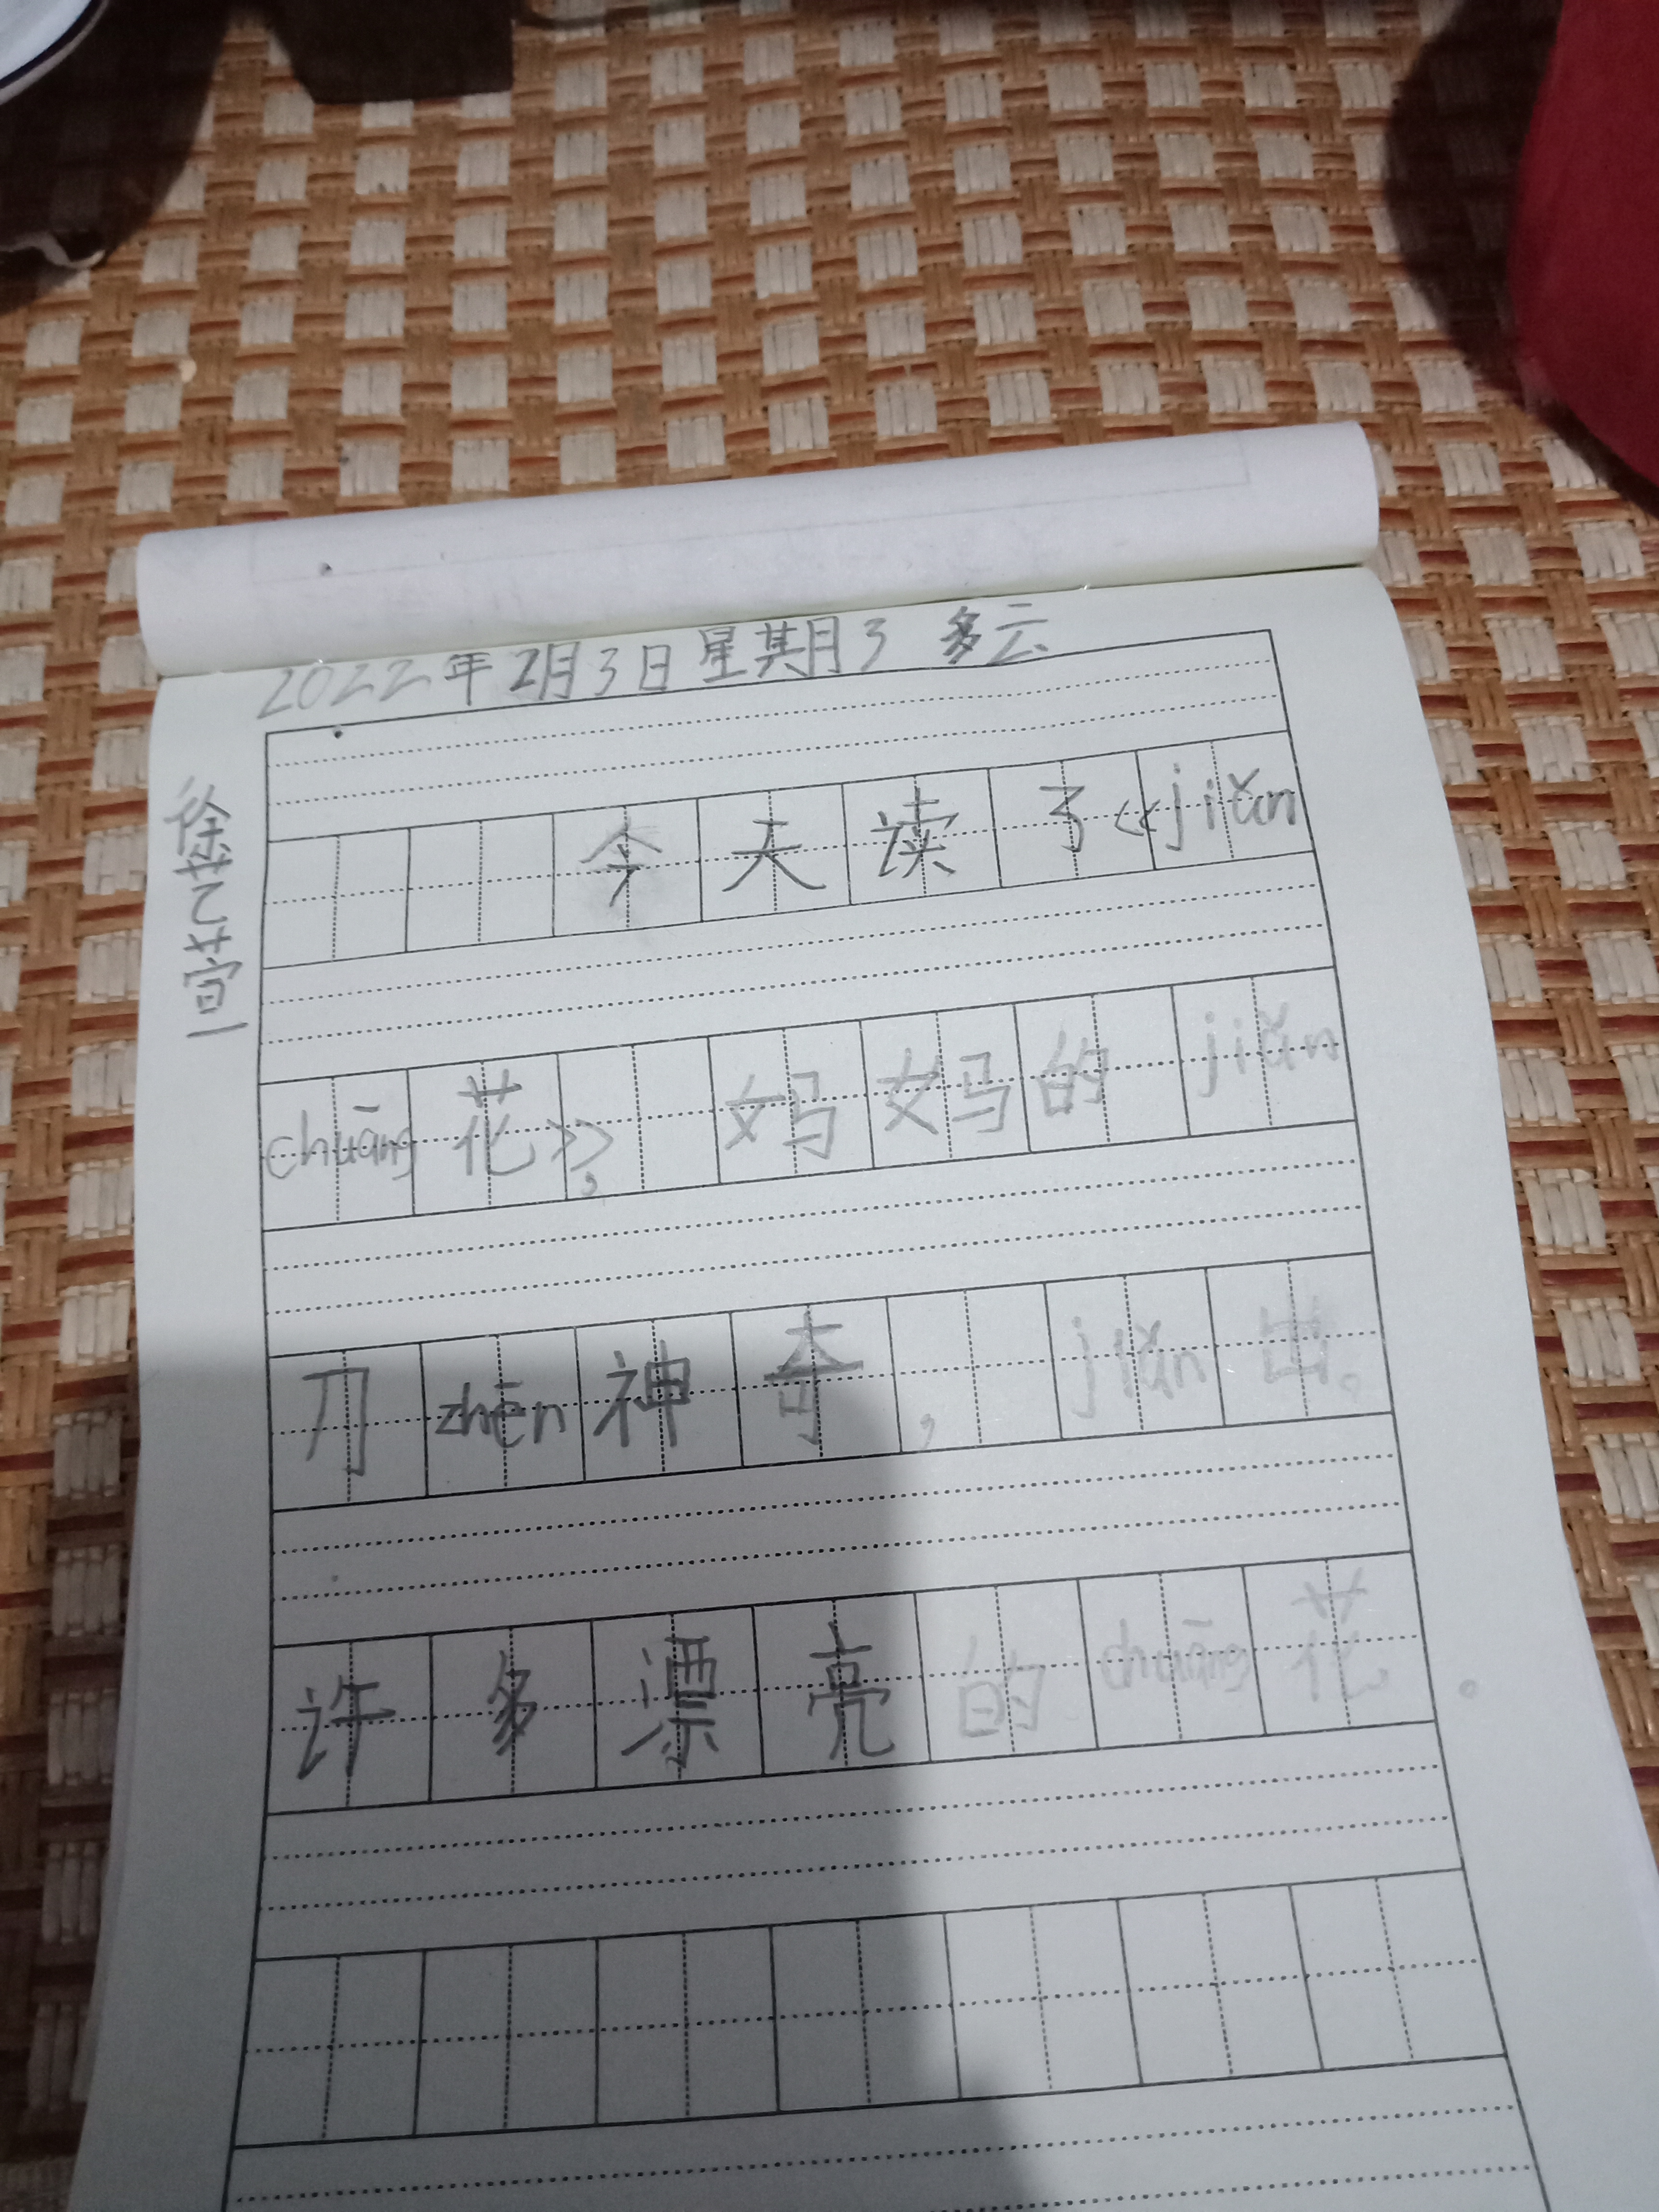 2022年2月3日星期3 多云
今天读了《jiǎn
chuāng花》，妈妈的jiǎn
刀zhēn神奇，jiǎn出。
许多漂亮的chuāng花。